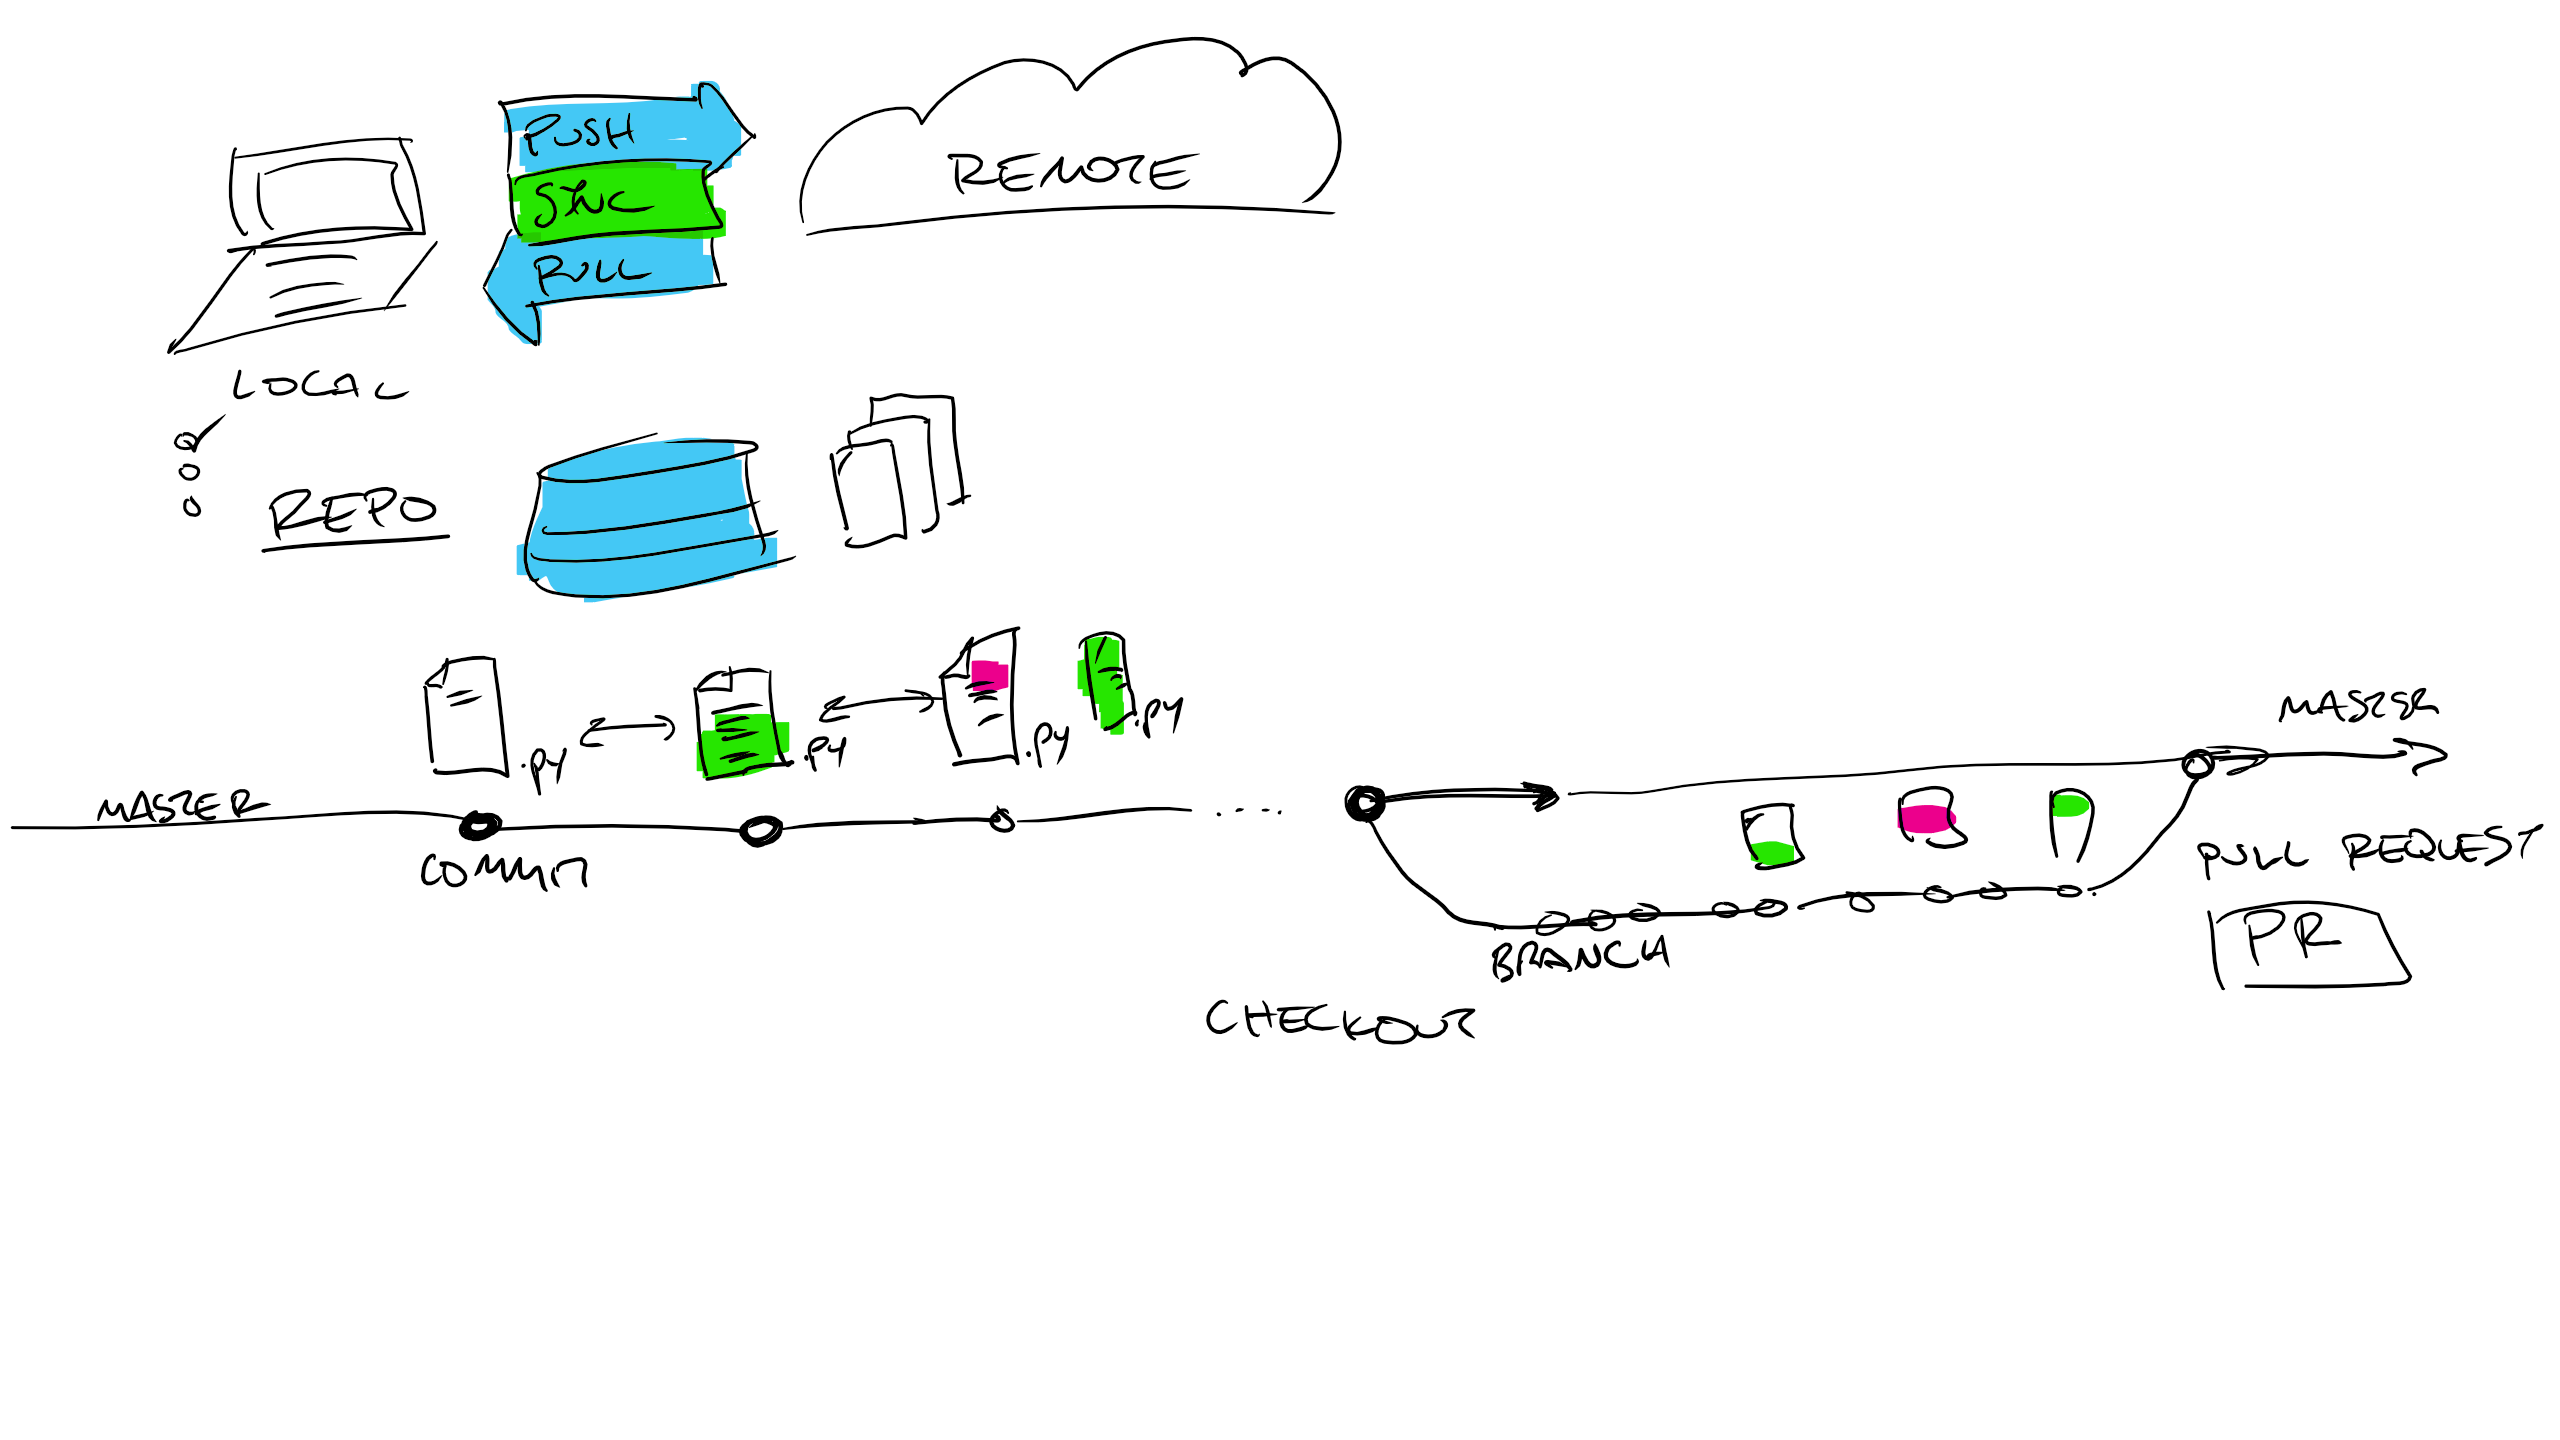 PUSH
SYNC
PULL
REMOTE
LOCAL
REPO
.PY
.PY
.PY
.PY
MASTER
COMMIT
MASTER
PULL REQUEST
PR
BRANCH
CHECKOUT